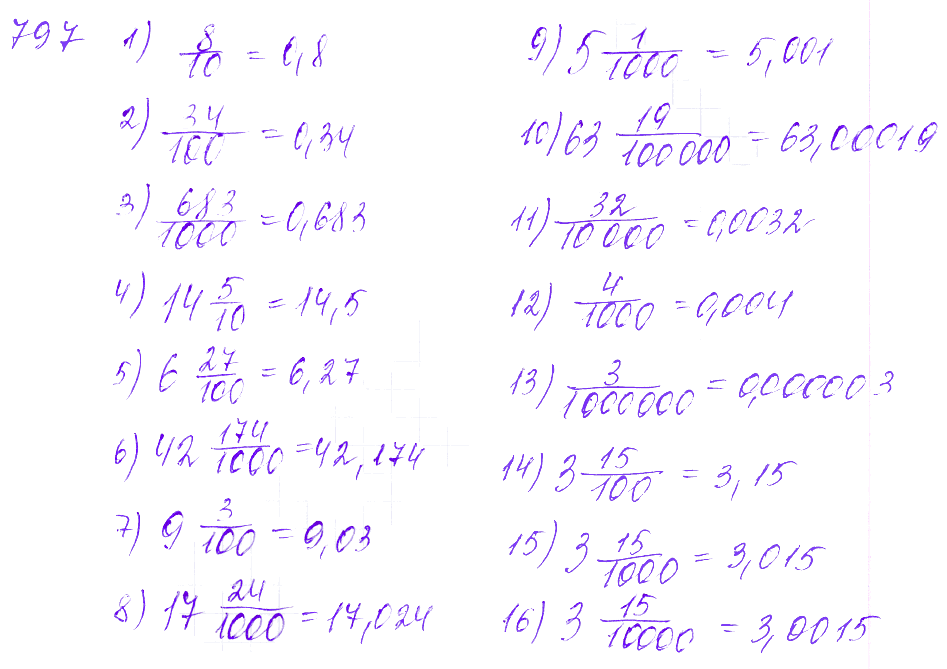 797 1) 8/10 = 0,8
2) 34/100 = 0,34
3) 683/1000 = 0,683
4) 14 5/10 = 14,5
5) 6 27/100 = 6,27
6) 42 174/1000 = 42,174
7) 9 3/100 = 9,03
8) 17 24/1000 = 17,024
9) 5 1/1000 = 5,001
10) 63 19/100000 = 63,00019
11) 32/10000 = 0,0032
12) 4/1000 = 0,004
13) 3/1000000 = 0,000003
14) 3 15/100 = 3,15
15) 3 15/1000 = 3,015
16) 3 15/10000 = 3,0015